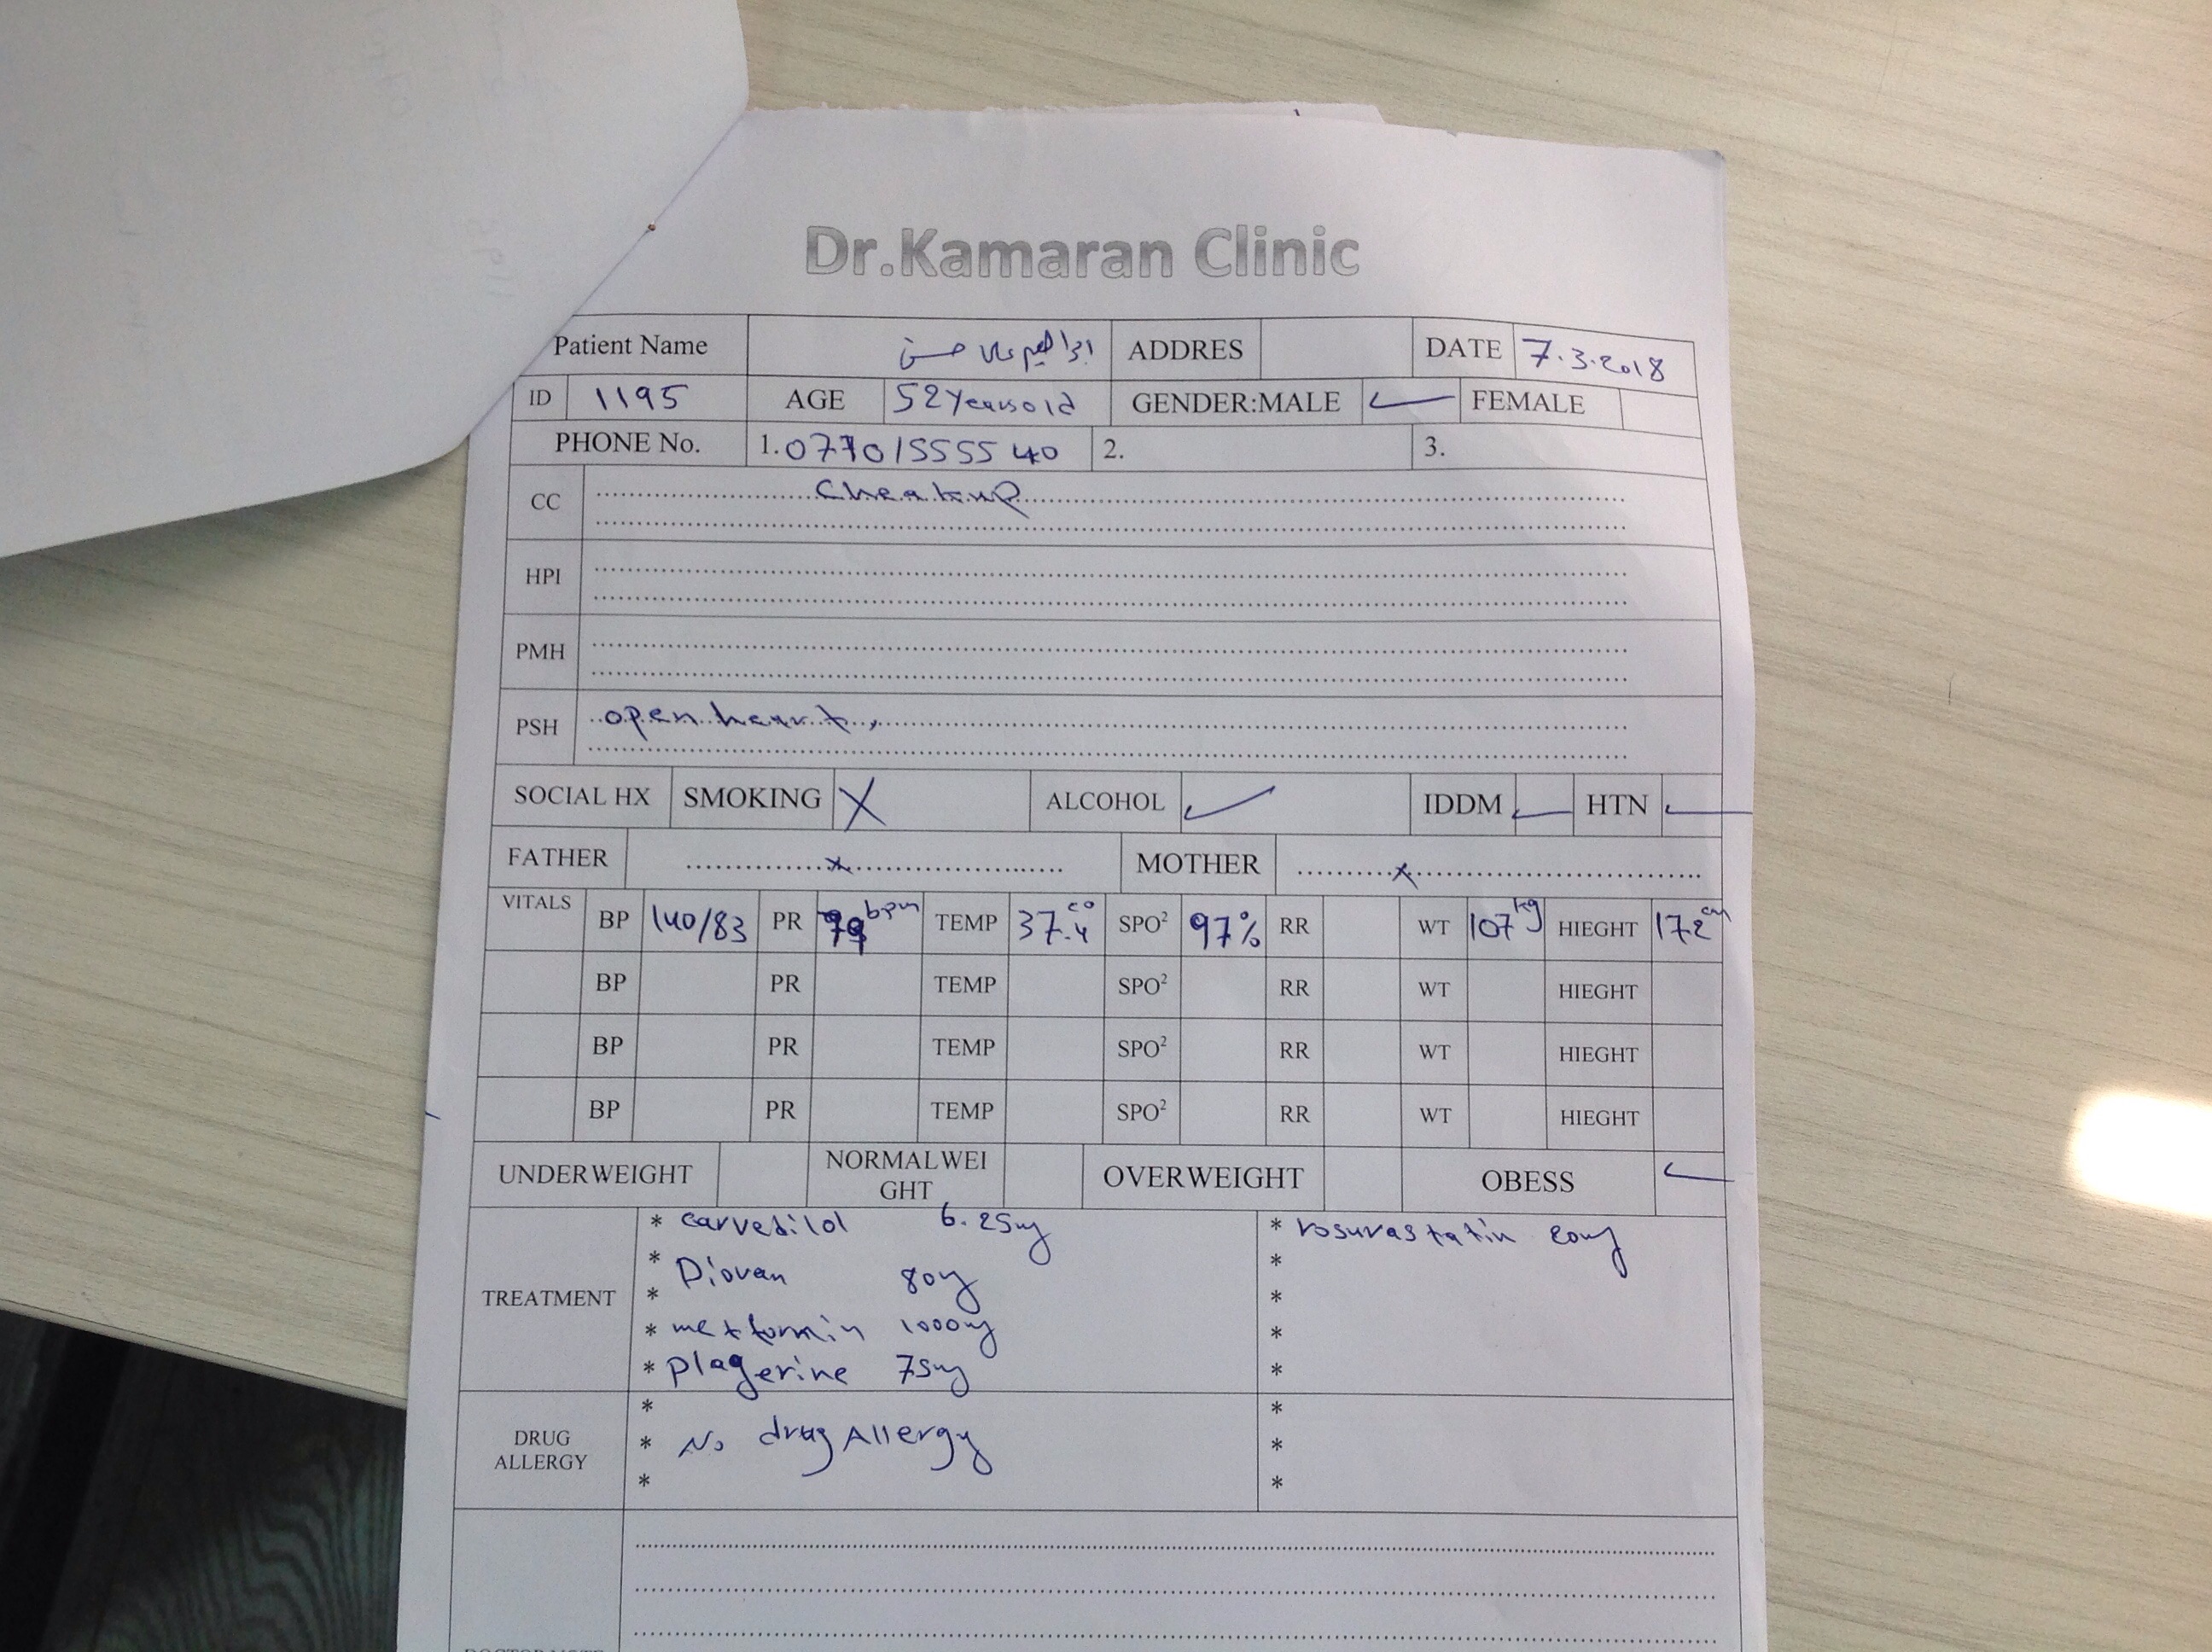 Dr.Kamaran Clinic
Patient Name ابراهيم حسن ADDRES DATE 7.3.2018
ID 1195 AGE 52 Years old GENDER:MALE ✓ FEMALE
PHONE No. 1. 0770 15555 40 2. 3.
CC Cheakup
HPI
PMH
PSH open heart,
SOCIAL HX SMOKING X ALCOHOL ✓ IDDM ✓ HTN ✓
FATHER x MOTHER x
VITALS BP 140/83 PR bpm TEMP 37.4 c° SPO² 97% RR WT 107 kg HIEGHT 172 cm
BP PR TEMP SPO² RR WT HIEGHT
BP PR TEMP SPO² RR WT HIEGHT
BP PR TEMP SPO² RR WT HIEGHT
UNDERWEIGHT NORMALWEI
GHT OVERWEIGHT OBESS ✓
TREATMENT
* carvedilol 6.25mg
* Diovan 80mg
*
* metformin 1000mg
* plagerine 75mg
* rosuvastatin 20mg
*
*
*
*
DRUG
ALLERGY
*
* No drug Allergy
*
*
*
*